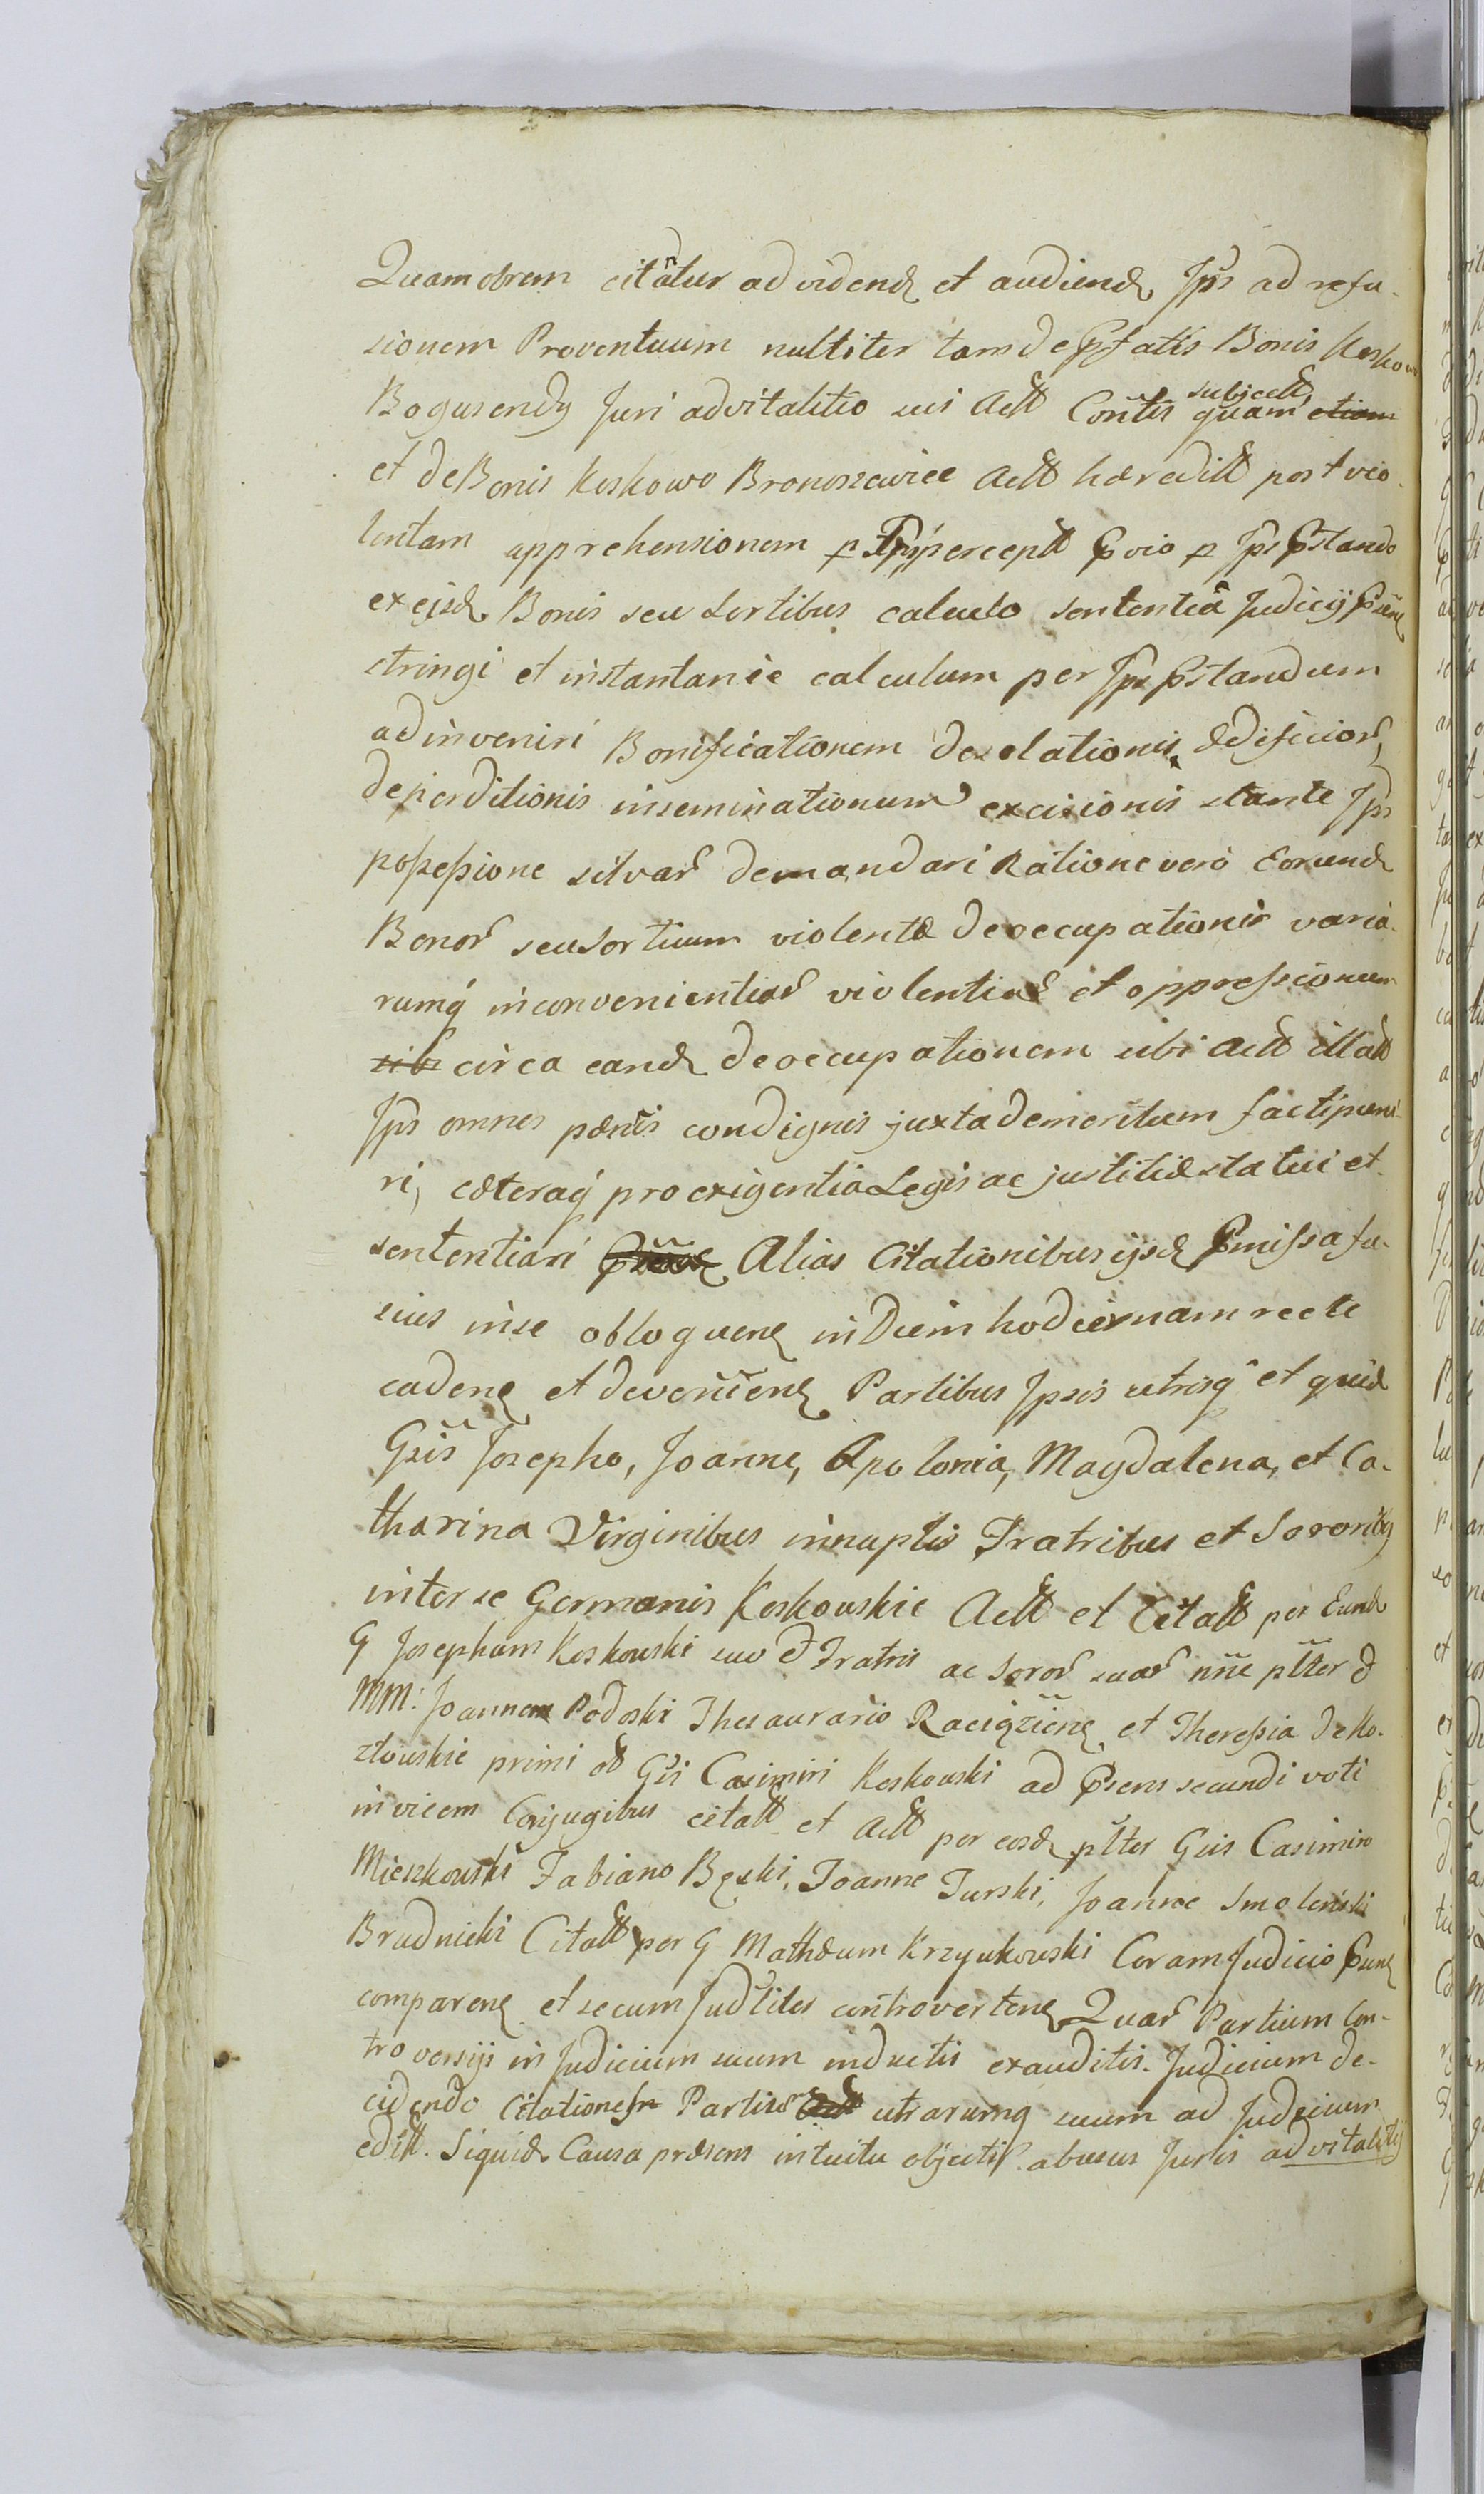 Quamobrem citatur ad vidend et audiend Ipss ad refu-
sionem Proventuum nulliter tam de pfatis Bonis Koskow
Bogusendy Juri advitalitio sui Actt Contts subjectt quam etiam
et de Bonis Koskowo Bronoszewice Actt haereditt post vio-
lentam apprehensionem p Ipss perceptt pvio p Ips pstando
ex ejsd Bonis seu Sortibus calculo sententia Judicij psenc
stringi et instantanie calculum per Ips pstandum
adinveniri Bonificationem desolationis, Ædificior,
deperditionis inseminationum excisionis stante Ips
possessione silvar demandari Ratione vero Eorund
Bonor seu Sortium violentæ deoccupationis varia-
rumq inconvenientiar violentiar et oppressionum
sib circa eand deoccupationem sibi Actt illatt
Ips omnes pænis condignis juxta demeritum facti puni-
ri, cæteraq pro exigentia Legis ac justitiæ statui et
sententiari Alias Citationibus ijsd pmissa fu-
sius in se obloquenc in Diem hodiernam recte
cadenc et devenienc Partibus Ipsis utrisq et quid
Gsis Josepho, Joanne, Apolonia, Magdalena, et Ca-
tharina Virginibus innuptis Fratribus et Sororibg
inter se Germanis Koskowskie Actt et Citatt per Eund
G Josephum Koskowski suo et Fratris ac Soror suar nne ptter d
MM: Joannem Podoski Thesaurario Raciązienc et Theressia de Ko-
złowskie primi olt Gsi Casimiri Koskowski ad psens secundi voti
invicem Conjugibus citatt et Actt per eosd ptter Gsis Casimiro
Mieszkowski Fabiano Bęski, Joanne Turski, Joanne Smolenski
Brudnicki Citatt per G Mathæum Krzyukowski Coram Judicio psenc
comparenc et secum Judlites controvertenc Quar Partium Con-
troversijs in Judicium suum inductis exauditis. Judicium de-
cidendo Citationesm Partium utrarumq suum ad Judicium
editt. Siquid Causa præsens intuitu objecti abusus Juris advitalitij